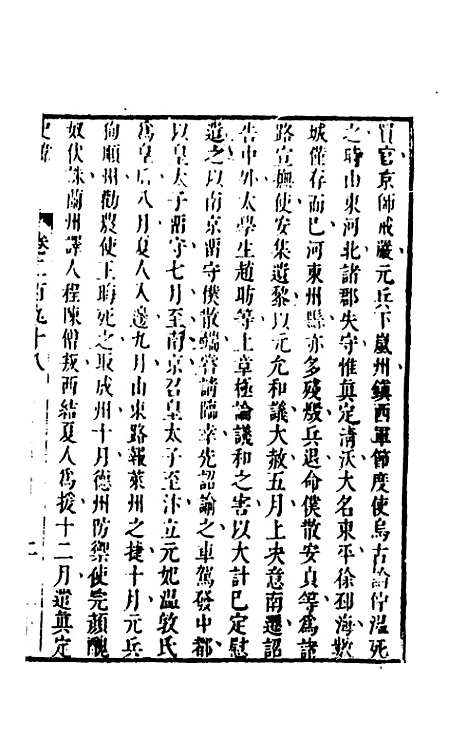 買官京師戒嚴元兵下嵐州鎮西軍節度使烏古論仲溫死
之時山東河北諸郡失守惟眞定清沃大名東平徐邳海數
城僅存而已河東州縣亦多殘燬兵退命僕散安貞等爲諸
路宣撫使安集遺黎以元允和議大赦五月上决意南遷詔
告中外太學生趙昉等上章極論議和之害以大計已定慰
遣之以南京留守僕散端等請臨幸先詔諭之車駕發中都
以皇太子留守七月至南京召皇太子至汴立元妃溫敦氏
爲皇后八月夏人入邊九月山東路報萊州之捷十月元兵
狥順州勸農使王晦死之取成州十月德州防禦使完顏醜
奴伏誅蘭州譯人程陳僧叛西結夏人爲援十二月遣眞定
史緯
卷二百九十八
二